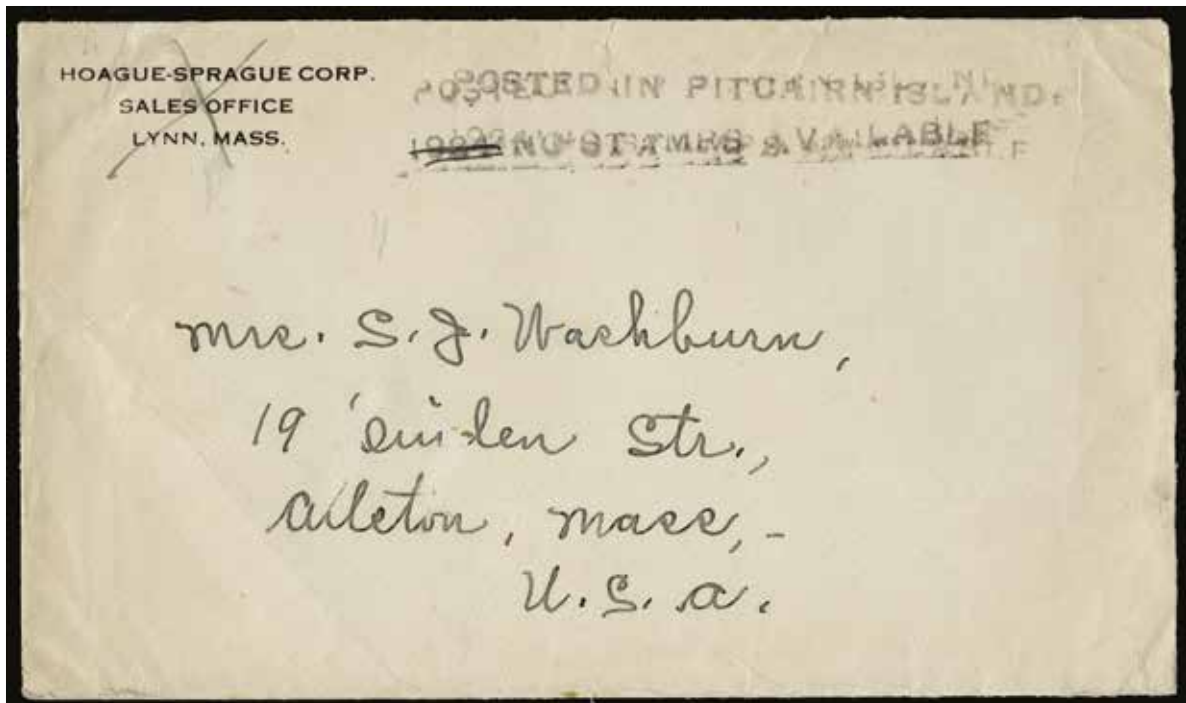 HOAGUE-SPRAGUE CORP.
SALES OFFICE
LYNN, MASS.
POSTED IN PITCAIRN ISLAND.
NO STAMPS AVAILABLE
Mrs. S. J. Washburn,
19 Str.,
Mass, -
U. S. A.